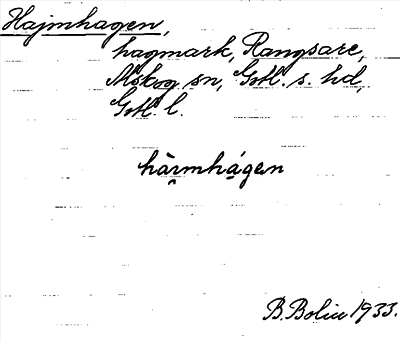 Hajmhagen,
hagmark, Rangsare,
Mskog sn, Gotl. s. hd,
Gotl. l.
hàrmhágen
B. Bolin 1933.